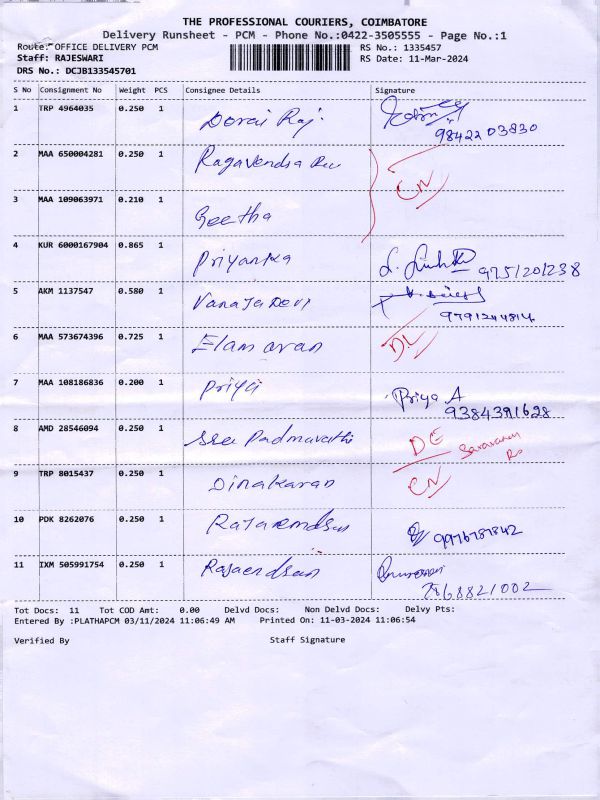 THE PROFESSIONAL COURIERS, COIMBATORE
Delivery Runsheet - PCM - Phone No.:0422-3505555 - Page No.:1
Route: OFFICE DELIVERY PCM RS No.: 1335457
Staff: RAJESWARI RS Date: 11-Mar-2024
DRS No.: DCJB133545701
S No Consignment No Weight PCS Consignee Details Signature
1 TRP 4964035 0.250 1 Dorai Raj
98422 03830
2 MAA 650004281 0.250 1 CN
3 MAA 109063971 0.210 1 Geetha
4 KUR 6000167904 0.865 1 Priyanka 975/201238
5 AKM 1137547 0.580 1 Vanaja Devi
9791244814
6 MAA 573674396 0.725 1 Elam aran DL
7 MAA 108186836 0.200 1 Priya Priya A
9384391628
8 AMD 28546094 0.250 1 Sree Padmavathi DE
9 TRP 8015437 0.250 1 Dinakaran CN
10 PDK 8262076 0.250 1 9976787842
11 IXM 505991754 0.250 1
7868821002
Tot Docs: 11 Tot COD Amt: 0.00 Delvd Docs: Non Delvd Docs: Delvy Pts:
Entered By :PLATHAPCM 03/11/2024 11:06:49 AM Printed On: 11-03-2024 11:06:54
Verified By Staff Signature